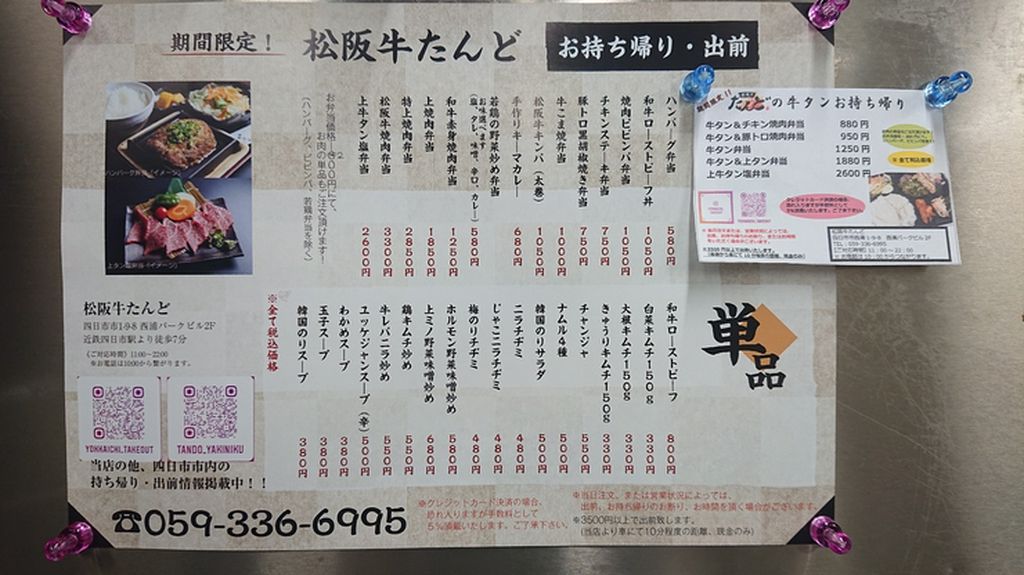 期間限定！
松阪牛たんど
お持ち帰り・出前
ハンバーグ弁当 580円
和牛ローストビーフ丼 1050円
焼肉ビビンバ弁当 750円
チキンステーキ弁当 750円
豚トロ黒胡椒焼き弁当 750円
牛こま焼き弁当 1000円
松阪牛キンパ（太巻） 1050円
手作りキーマカレー 680円
若鶏の野菜炒め弁当 580円
お味選べます
（塩、タレ、味噌、辛口、カレー）
和牛赤身焼肉弁当 1250円
上焼肉弁当 1850円
特上焼肉弁当 2580円
松阪牛焼肉弁当 3300円
上牛タン塩弁当 2600円
お弁当価格－300円にて、
お肉の単品もご注文頂けます！
（ハンバーグ、ビビンバ、若鶏弁当を除く）
ハンバーグ弁当（イメージ）
上タン塩弁当（イメージ）
単品
和牛ローストビーフ 800円
白菜キムチ150g 330円
大根キムチ150g 330円
きゅうりキムチ150g 330円
チャンジャ 500円
ナムル4種 500円
韓国のりサラダ 500円
ニラチヂミ 480円
じゃこニラチヂミ 480円
梅のりチヂミ 480円
ホルモン野菜味噌炒め 580円
上ミノ野菜味噌炒め 680円
鶏キムチ炒め 500円
牛レバニラ炒め 550円
ユッケジャンスープ（辛） 500円
わかめスープ 380円
玉子スープ 380円
韓国のりスープ 380円
※全て税込価格
松阪牛たんど
四日市市1-9-8 西浦パークビル2F
近鉄四日市駅より徒歩7分
《ご対応時間》11:00～22:00
※お電話は10:00から繋がります。
YOKKAICHI_TAKEOUT
TANDO_YAKINIKU
当店の他、四日市市内の
持ち帰り・出前情報掲載中！！
☎059-336-6995
※クレジットカード決済の場合、
恐れ入りますが手数料として
5％頂戴いたします。ご了承下さい。
※当日注文、または営業状況によっては、
出前、お持ち帰りのお断り、お時間を頂く場合がございます。
※3500円以上で出前致します。
(当店より車にて10分程度の距離、現金のみ)
期間限定！！
たんどの牛タンお持ち帰り
牛タン＆チキン焼肉弁当 880円
牛タン＆豚トロ焼肉弁当 950円
牛タン弁当 1250円
牛タン＆上タン弁当 1880円
上牛タン塩弁当 2600円
※全て税込価格
クレジットカード決済の場合、
恐れ入りますが手数料として
5％頂戴いたします。ご了承下さい。
松阪牛たんど
四日市市西浦1-9-8 西浦パークビル2F
TEL：059-336-6995
《ご対応時間》11:00～22:00
※お電話は10:00からつながります。